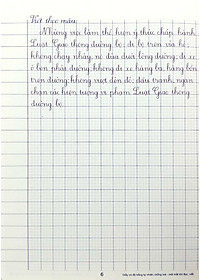 Viết theo mẫu:
Những việc làm thể hiện ý thức chấp hành
Luật Giao thông đường bộ: đi bộ trên vỉa hè;
không chạy nhảy, nô đùa dưới lòng đường; đi xe
ở bên phải đường; không đi xe hàng ba, hàng bốn
trên đường; không vượt đèn đỏ; đấu tranh, ngăn
chặn các hiện tượng vi phạm Luật Giao thông
đường bộ.
6